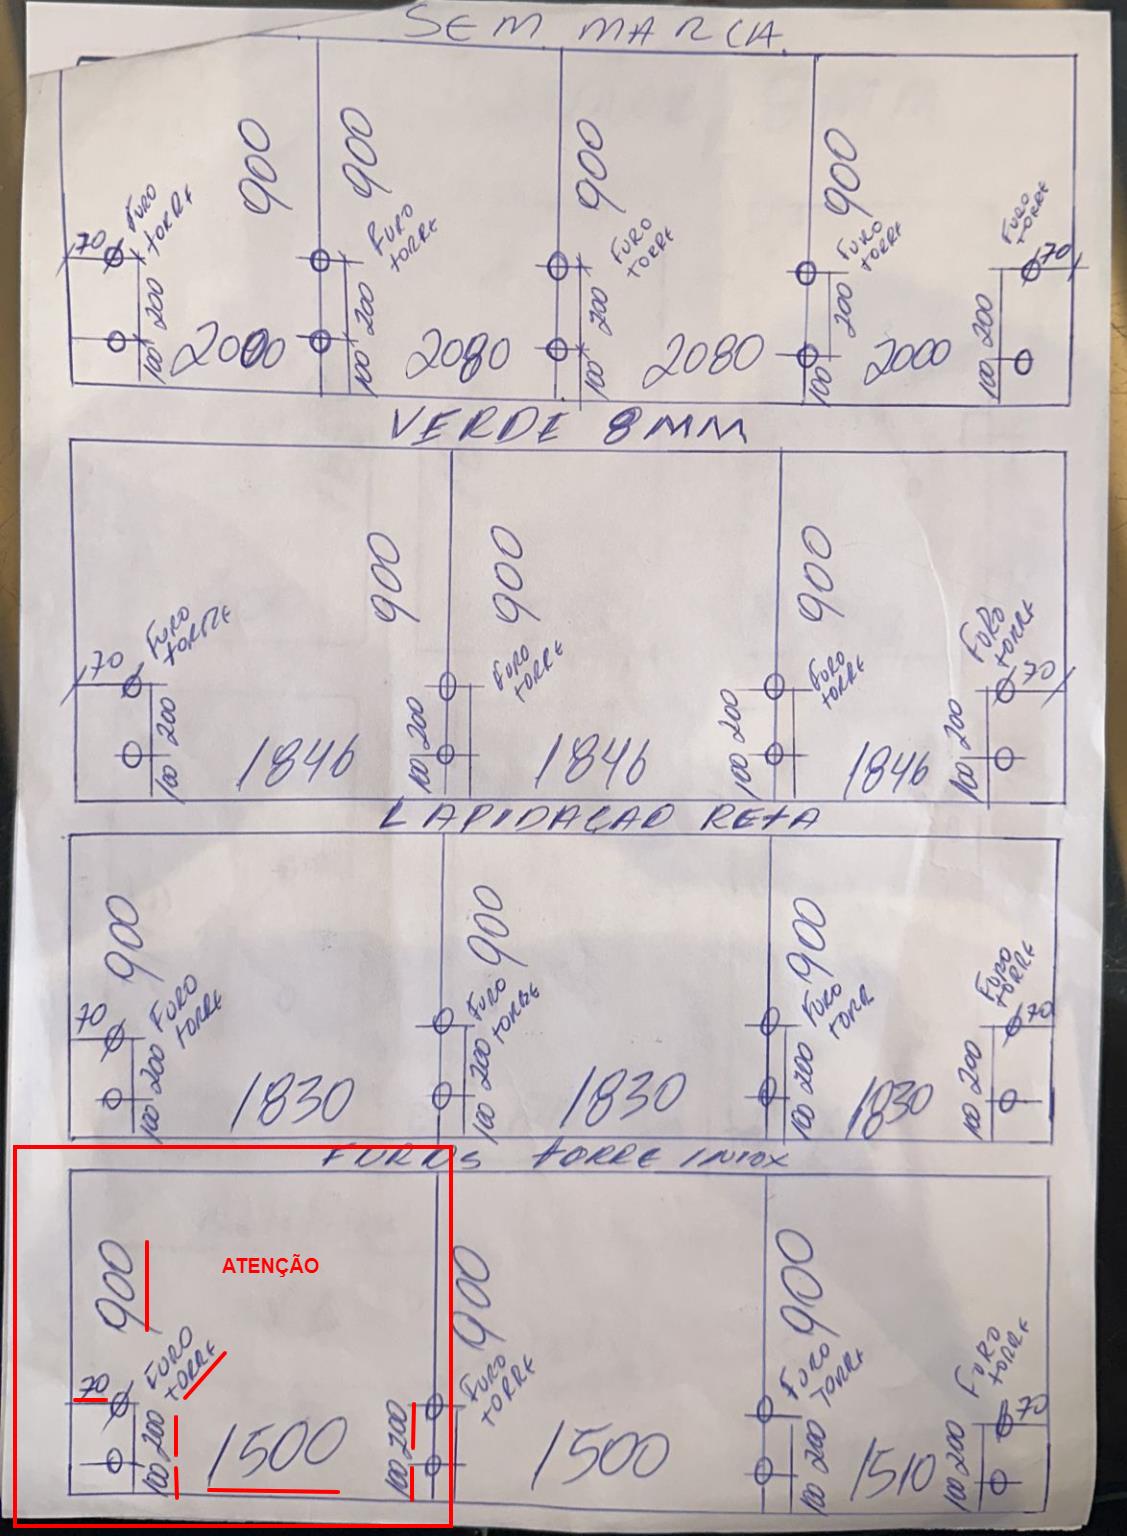 SEM MARCA.
900
900
900
900
70
FURO
TORRE
FURO
TORRE
FURO
TORRE
FURO
TORRE
FURO
TORRE
70
200
200
200
200
200
100
2000
100
2080
100
2080
100
2000
100
VERDE 8MM
900
900
900
70
FURO
TORRE
FURO
TORRE
FURO
TORRE
FURO
TORRE
70
200
200
200
200
100
1846
100
1846
100
1846
100
LAPIDAÇAO RETA
900
900
900
70
FURO
TORRE
FURO
TORRE
FURO
TORR
FURO
TORRE
70
200
200
200
200
100
1830
100
1830
100
1830
100
FUROS TORRE INOX
ATENÇÃO
900
900
900
70
FURO
TORRE
FURO
TORRE
FURO
TORRE
FURO
TORRE
70
200
200
200
200
100
1500
100
1500
100
1510
100